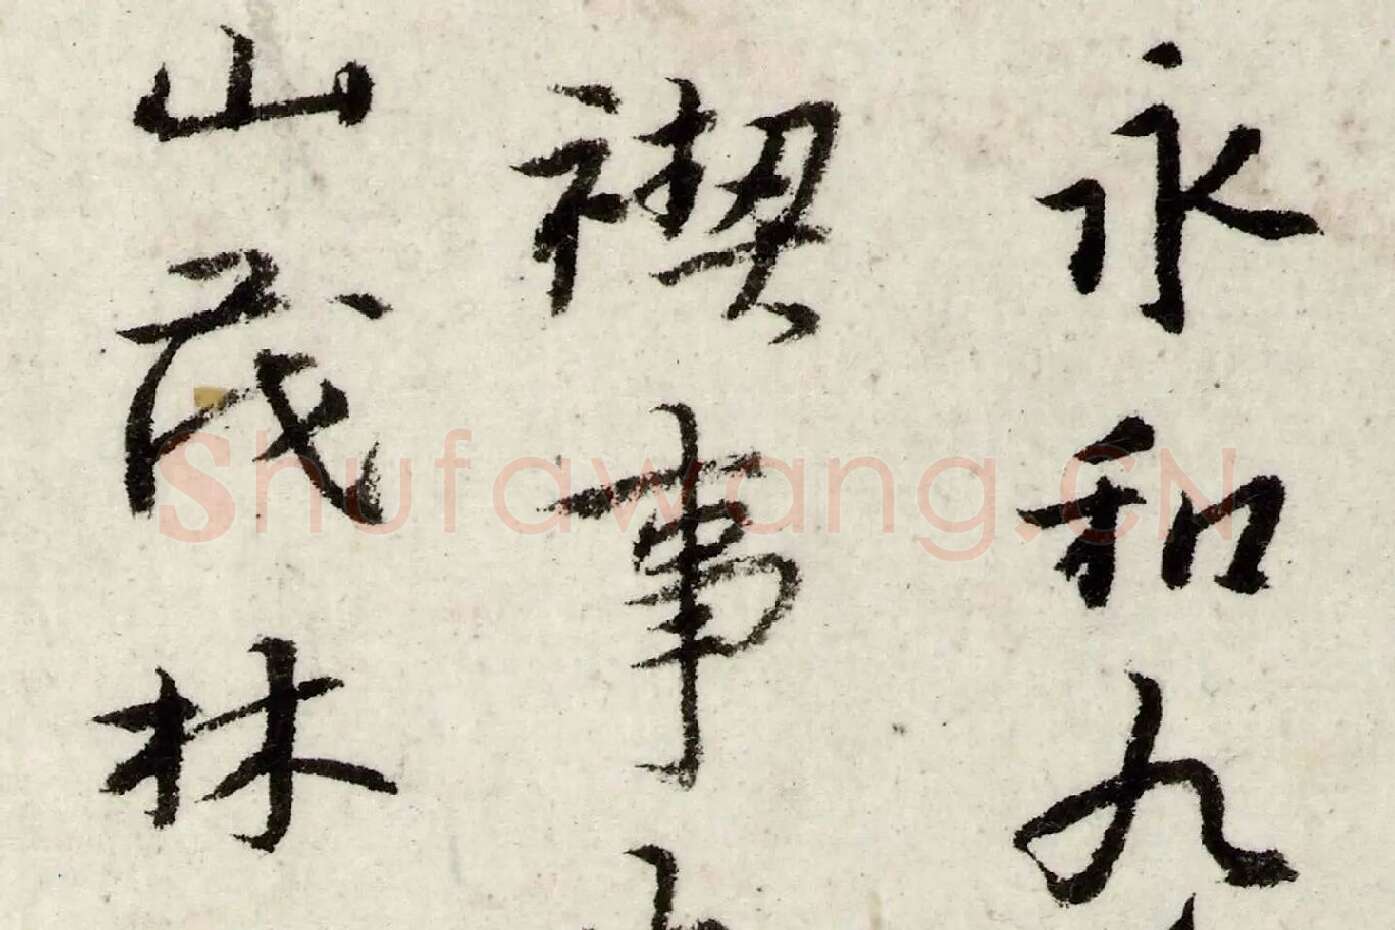 永和九
禊事
山茂林
Shufawang.CN